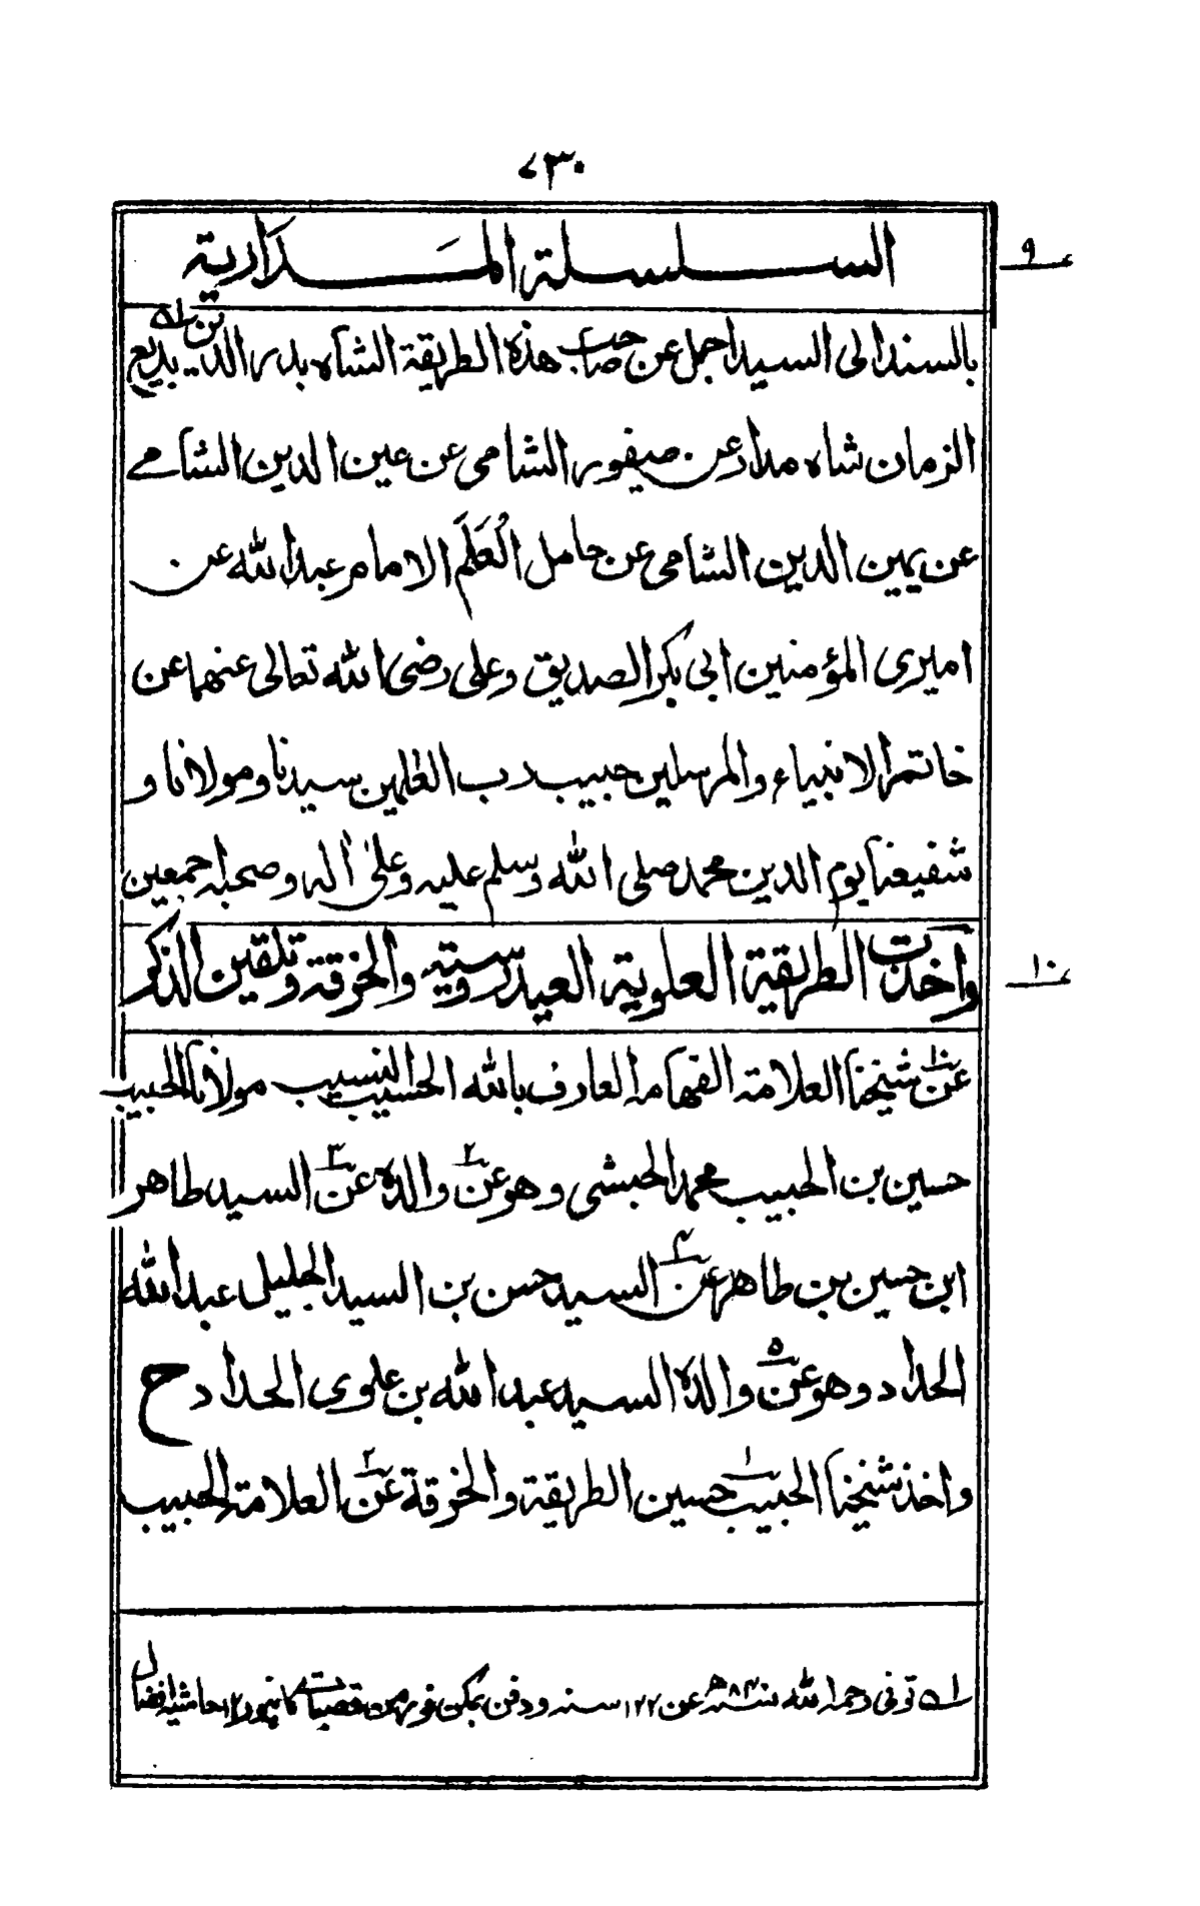 ٧٣٠
السلسلة المدارية
٩
بالسند الى السيد اجمل عن صاحب هذه الطريقة الشاه بدر الدين بديع
الزمان شاه مدار عن صيفور الشامى عن عين الدين الشامے
عن يمين الدين الشامى عن حامل العَلَم الامام عبد الله عن
اميرى المؤمنين ابى بكر الصديق وعلى رضى الله تعالى عنهما عن
خاتم الانبياء والمرسلين حبيب رب العٰلمين سيدنا ومولانا و
شفيعنا يوم الدين محمد صلى الله وسلم عليه وعلىٰ اٰله وصحبه اجمعين
واخذت الطريقة العلوية العيدروسية والخرقة وتلقين الذكر
١٠
عن شيخنا العلامة الفهامه العارف بالله الحسيب النسيب مولانا الحبيب
حسين بن الحبيب محمد الحبشى وهو عن٢ والده عن٣ السيد طاهر
ابن حسين بن طاهر عن٤ السيد حسن بن السيد الجليل عبد الله
الحداد وهو عن٥ والده السيد عبد الله بن علوى الحداد ح
واخذ شيخنا الحبيب١ حسين الطريقة والخرقة عن٢ العلامة الحبيب
لـه توفى رحمه الله سنة ٨٤٠ھ عن ١٢٢ سنه ودفن بمكن فور من قصبات كانپور ١٢ حاشيه افضال